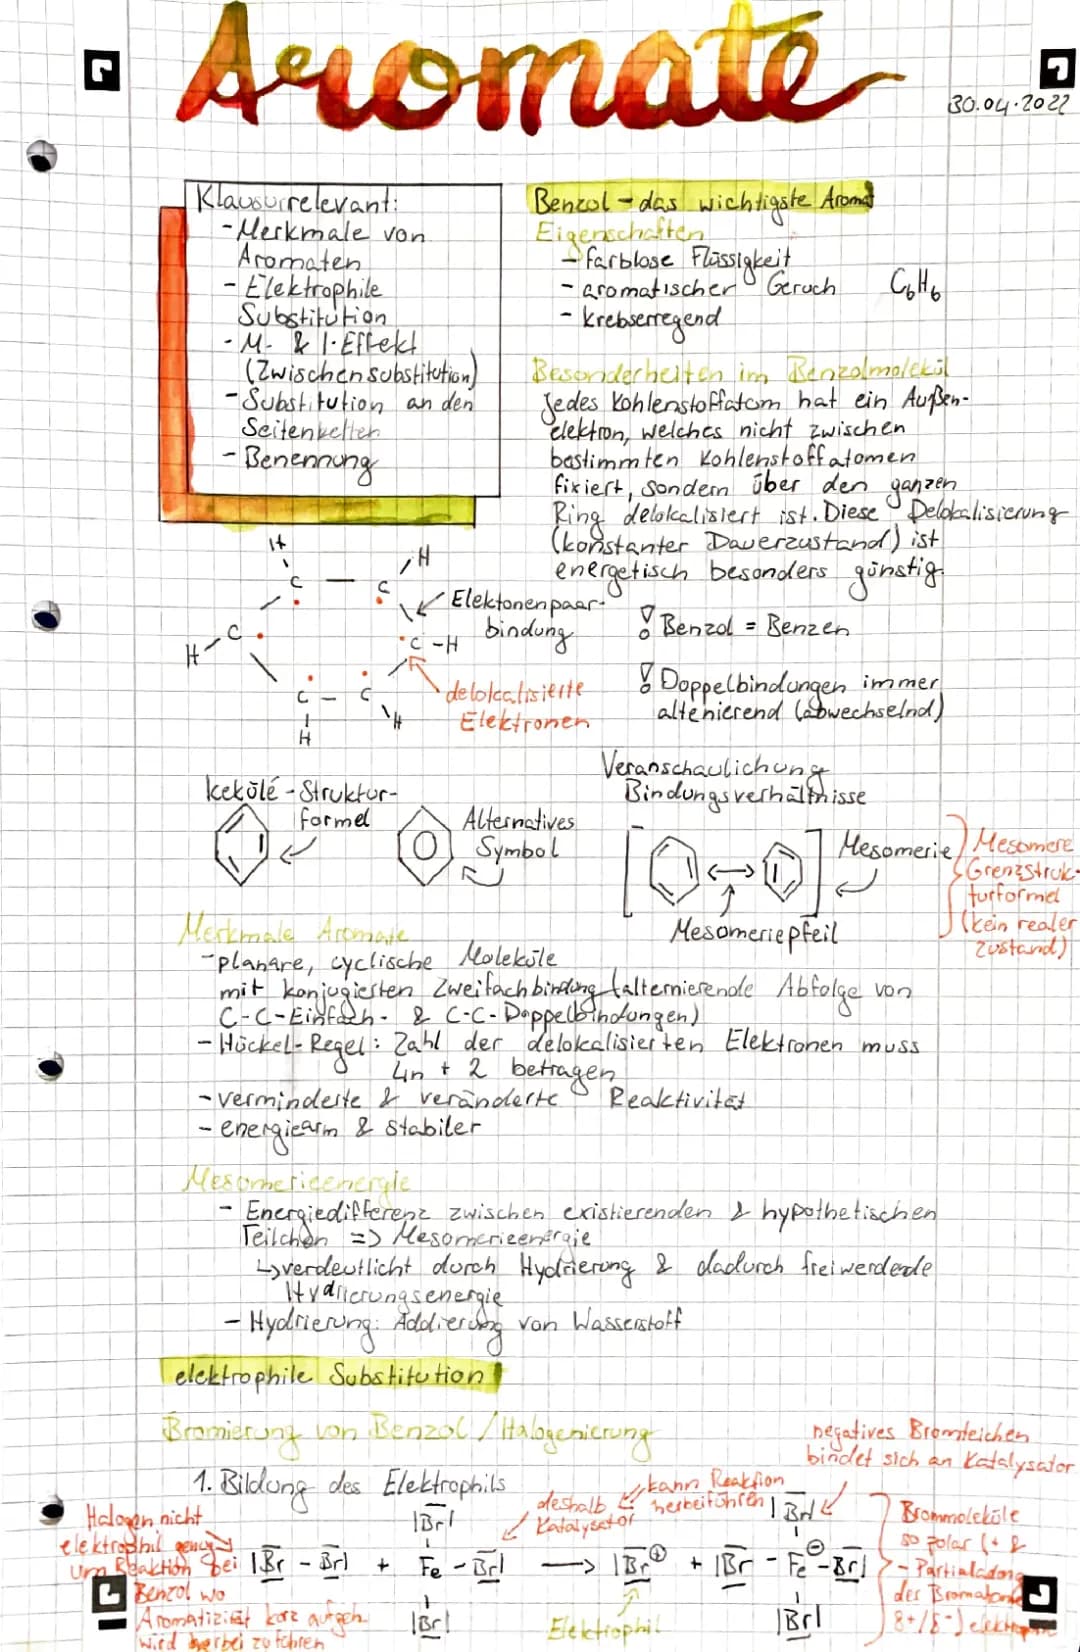 Aromate
30.04.2022
Klausurrelevant:
- Merkmale von
Aromaten
- Elektrophile
Substitution
- M- & I-Effekt
(Zwischensubstitution)
- Substitution an den
Seitenketten
- Benennung
Benzol - das wichtigste Aromat
Eigenschaften
- farblose Flüssigkeit
- aromatischer Geruch
- krebserregend
C₆H₆
Besonderheiten im Benzolmolekül
Jedes Kohlenstoffatom hat ein Außen-
elektron, welches nicht zwischen
bestimmten Kohlenstoffatomen
fixiert, sondern über den ganzen
Ring delokalisiert ist. Diese Delokalisierung
(konstanter Dauerzustand) ist
energetisch besonders günstig.
H
C — C
H
H - C
C - H
C - C
H
H
Elektonenpaar-
bindung
delokalisierte
Elektronen
! Benzol = Benzen
! Doppelbindungen immer
altenierend (abwechselnd)
Kekülé - Struktur-
formel
Alternatives
Symbol
Veranschaulichung
Bindungsverhältnisse
Mesomerie
Mesomeriepfeil
Mesomere
Grenzstruk-
turformel
(kein realer
zustand)
Merkmale Aromate
- planare, cyclische Moleküle
mit konjugierten Zweifachbindung (alternierende Abfolge von
C-C-Einfach- & C-C-Doppelbindungen)
- Hückel-Regel: Zahl der delokalisierten Elektronen muss
4n + 2 betragen
- verminderte & veränderte Reaktivität
- energiearm & stabiler
Mesomerieenergie
- Energiedifferenz zwischen existierenden & hypothetischen
Teilchen => Mesomerieenergie
↳ verdeutlicht durch Hydrierung & dadurch freiwerdede
Hydrierungsenergie
- Hydrierung: Addierung von Wasserstoff
elektrophile Substitution
Bromierung von Benzol / Halogenierung
1. Bildung des Elektrophils
negatives Bromteichen
bindet sich an Katalysator
kann Reaktion
herbeiführen
deshalb
Katalysator
Halogen nicht
elektrophil genug
um Reaktion bei
Benzol wo
Aromatizität kurz aufgeh.
wird herbei zu führen
|Br|
|Br|
|Br - Br| + Fe - Br| → |Br⊕ + |Br - Fe⊖ - Br|
|Br|
|Br|
Elektrophil
Brommoleküle
so polar (+ &
- Partialadung
des Bromatoms
δ+/δ-)